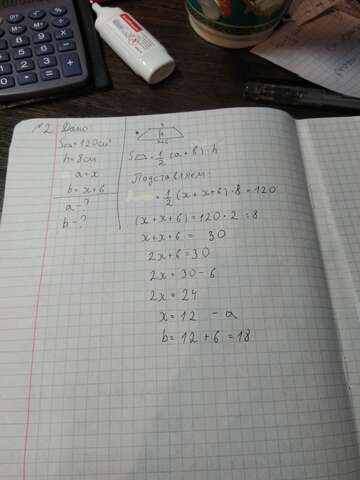 №2 Дано
S▱ = 120 см²
h = 8 см
a = x
b = x+6
a - ?
b - ?
S▱ = 1/2 (a + b) · h
Подставляем
= 1/2 (x + x+6) · 8 = 120
(x + x+6) = 120 · 2 : 8
x + x + 6 = 30
2x + 6 = 30
2x = 30 - 6
2x = 24
x = 12 - a
b = 12 + 6 = 18